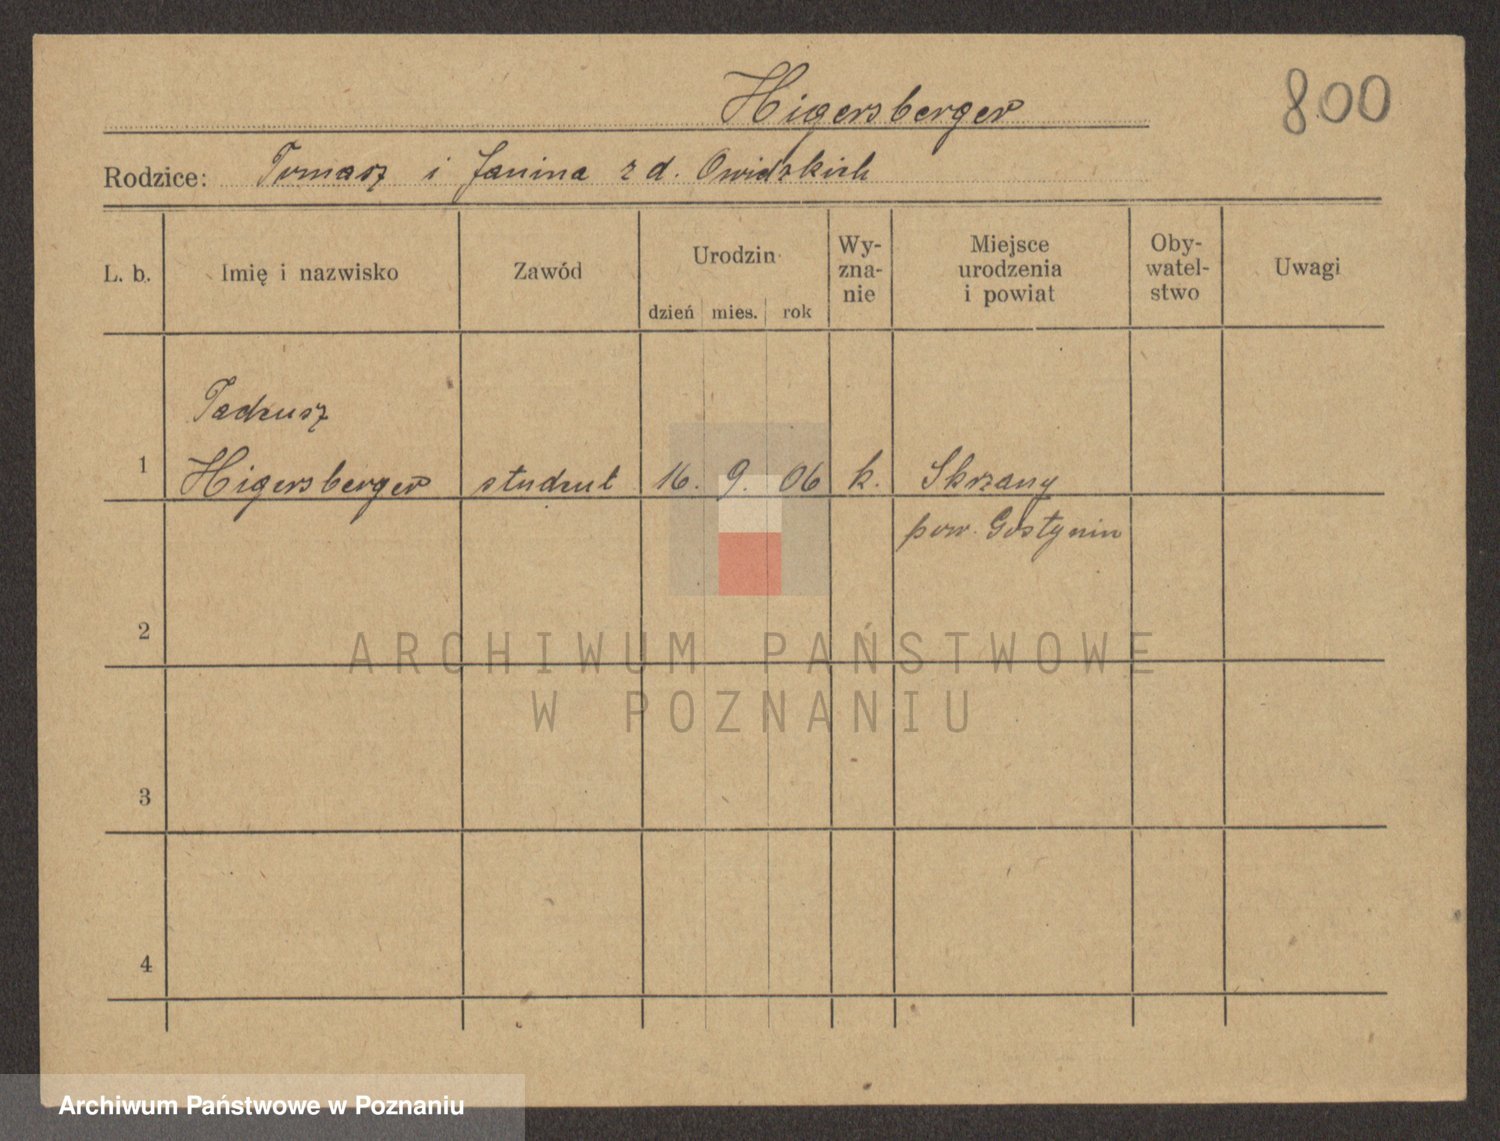 Higersberger
800
Rodzice: Tomasz i Janina z d. Owidzkich
L. b.
Imię i nazwisko
Zawód
Urodzin
dzień mies. rok
Wy-
zna-
nie
Miejsce
urodzenia
i powiat
Oby-
watel-
stwo
Uwagi
Tadeusz
1 Higersberger student 16. 9. 06 k. Skrzany
pow. Gostynin
2
ARCHIWUM PAŃSTWOWE
W POZNANIU
3
4
Archiwum Państwowe w Poznaniu